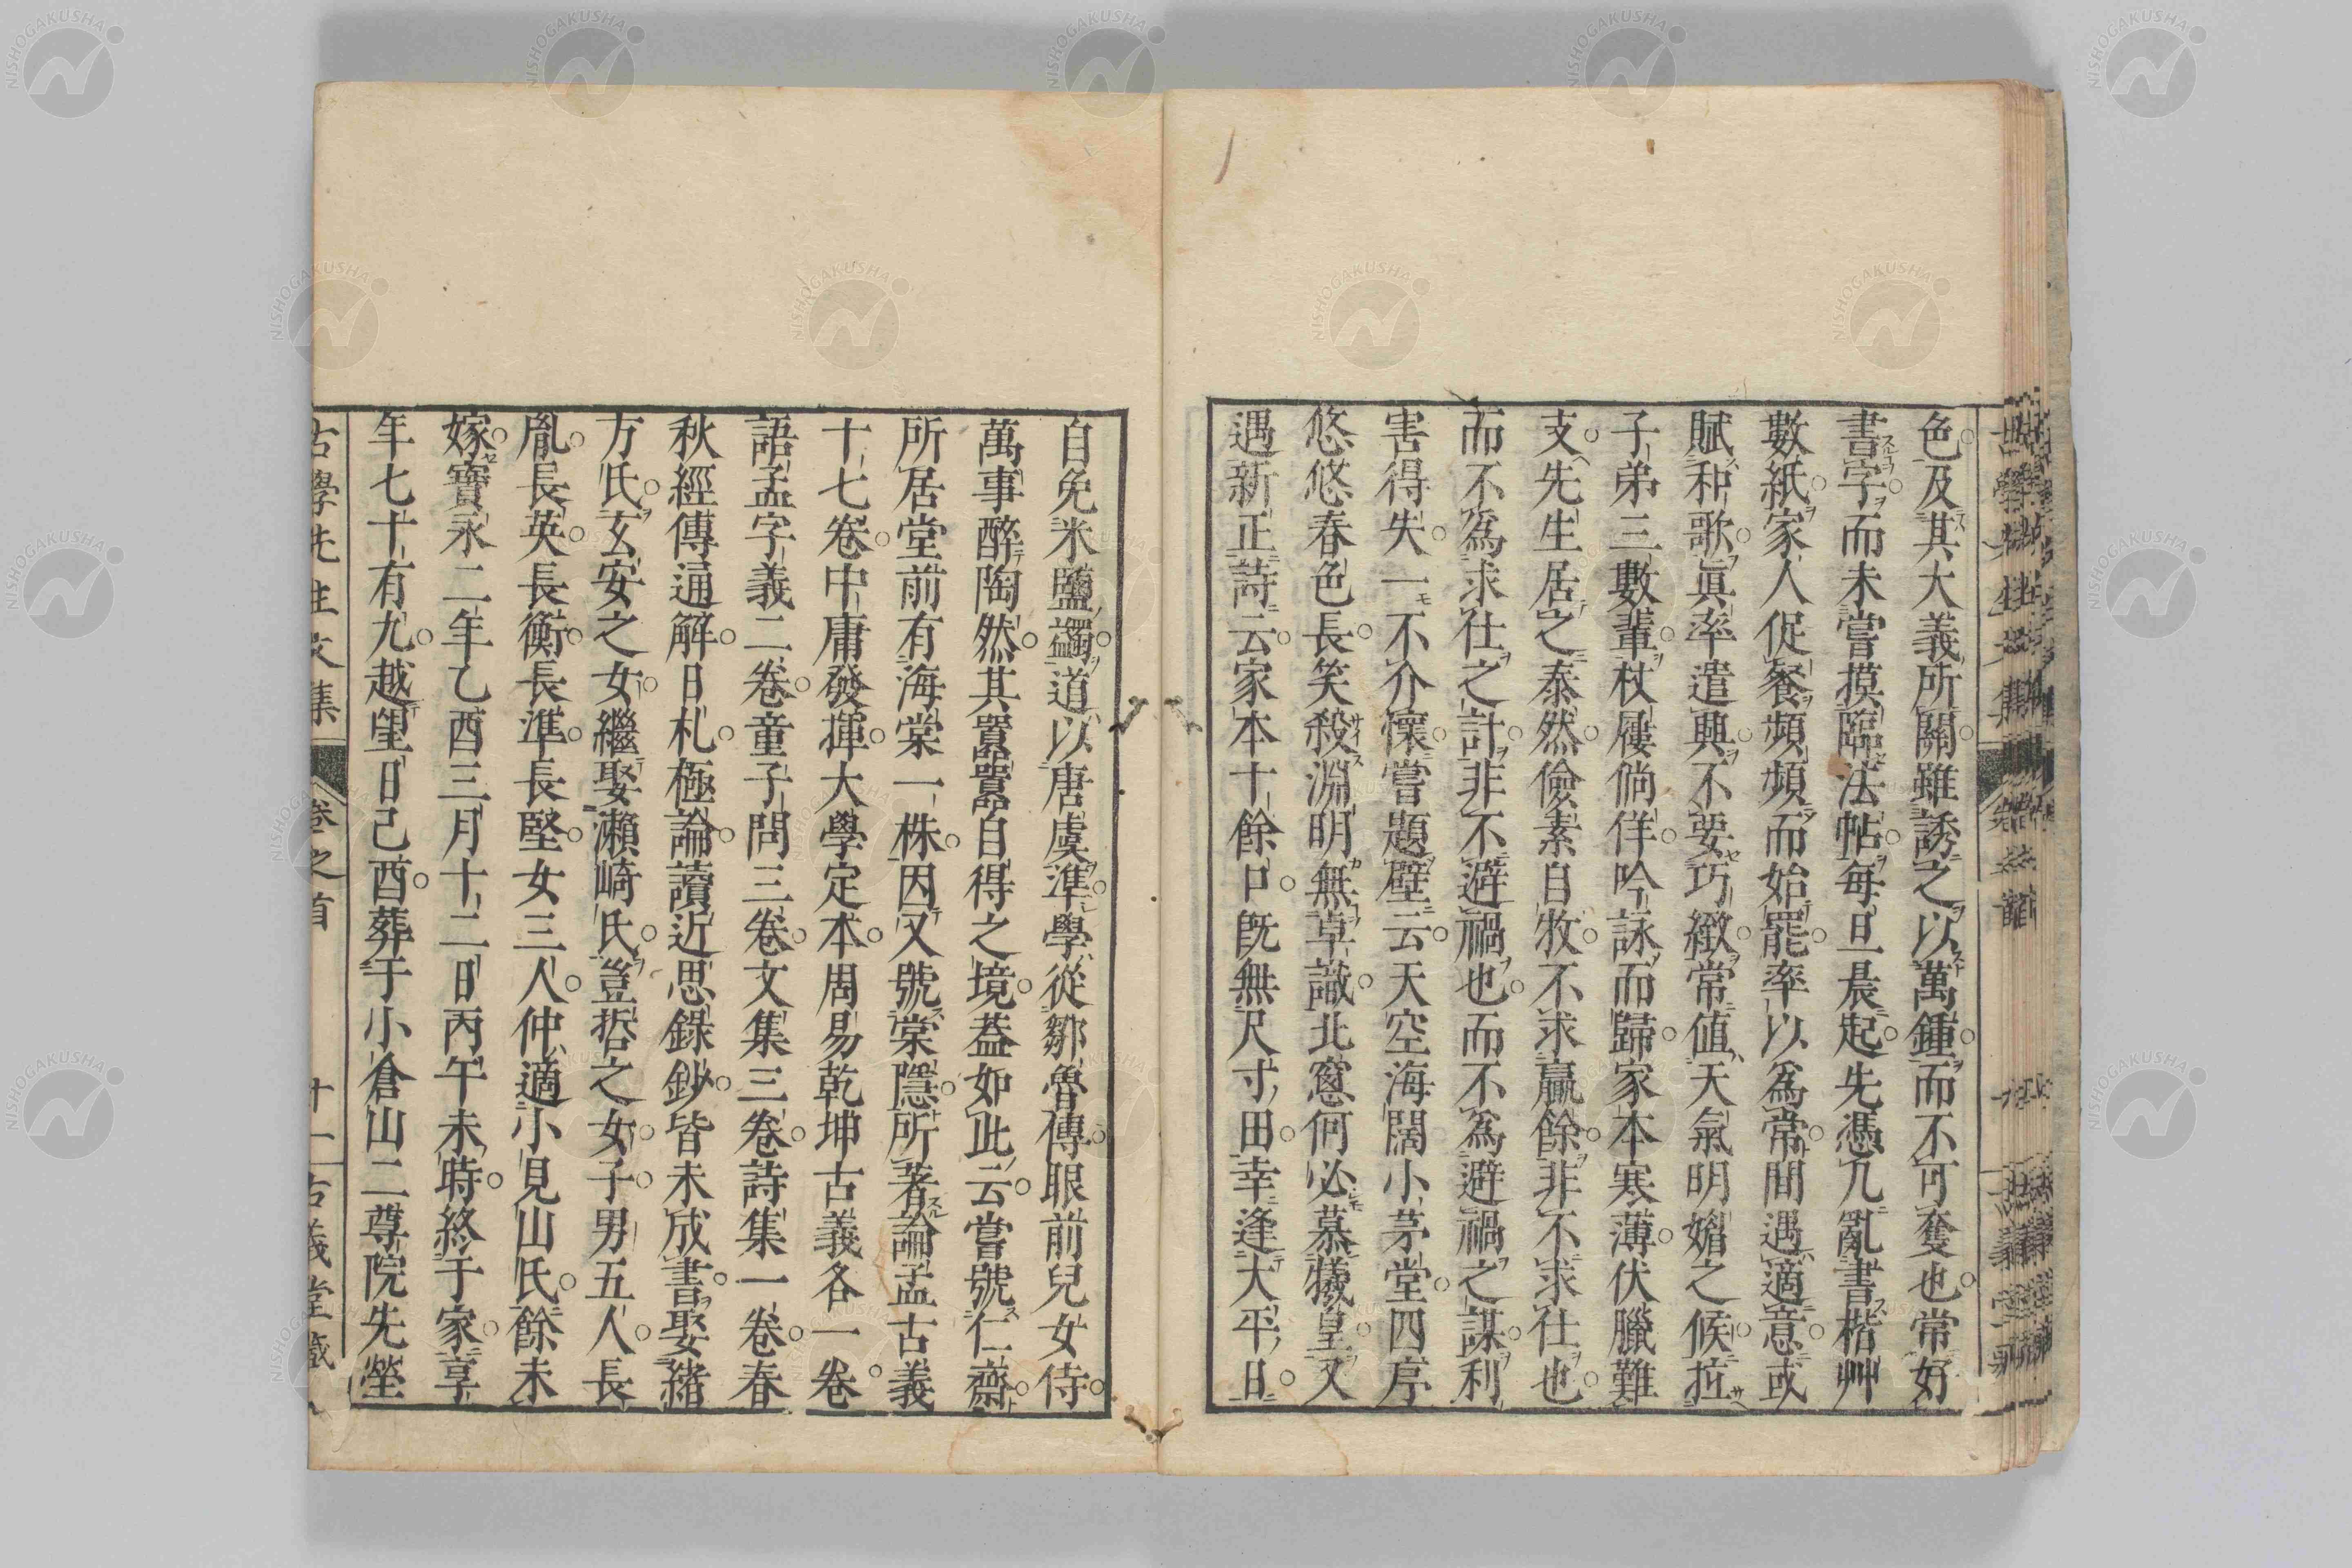 色及其大義所關雖誘之以萬鍾而不可奪也常好
書字而未嘗摸臨法帖每旦晨起先憑几亂書楷艸
數紙家人促餐頻頻而始罷率以爲常間遇適意或
賦和歌眞率遣興不要巧緻常値天氣明媚之候拉
子弟三數輩杖屨倘佯吟詠而歸家本寒薄伏臘難
支先生居之泰然儉素自牧不求贏餘非不求仕也
而不爲求仕之計非不避禍也而不爲避禍之謀利
害得失一不介懷嘗題壁云天空海闊小茅堂四序
悠悠春色長笑殺淵明無卓識北窓何必慕犧皇又
遇新正詩云家本十餘口旣無尺寸田幸逢大平日
自免米鹽蠲道以唐虞準學從鄒魯傳眼前兒女侍
萬事醉陶然其囂囂自得之境蓋如此云嘗號仁齋
所居堂前有海棠一株因又號棠隱所著論孟古義
十七卷中庸發揮大學定本周易乾坤古義各一卷
語孟字義二卷童子問三卷文集三卷詩集一卷春
秋經傳通解日札極論讀近思錄鈔皆未成書娶緒
方氏玄安之女繼娶瀨崎氏豈哲之女子男五人長
胤長英長衡長準長堅女三人仲適小見山氏餘未
嫁寶永二年乙酉三月十二日丙午未時終于家享
年七十有九越望日己酉葬于小倉山二尊院先塋
古學先生文集 卷之首 十一 古義堂藏